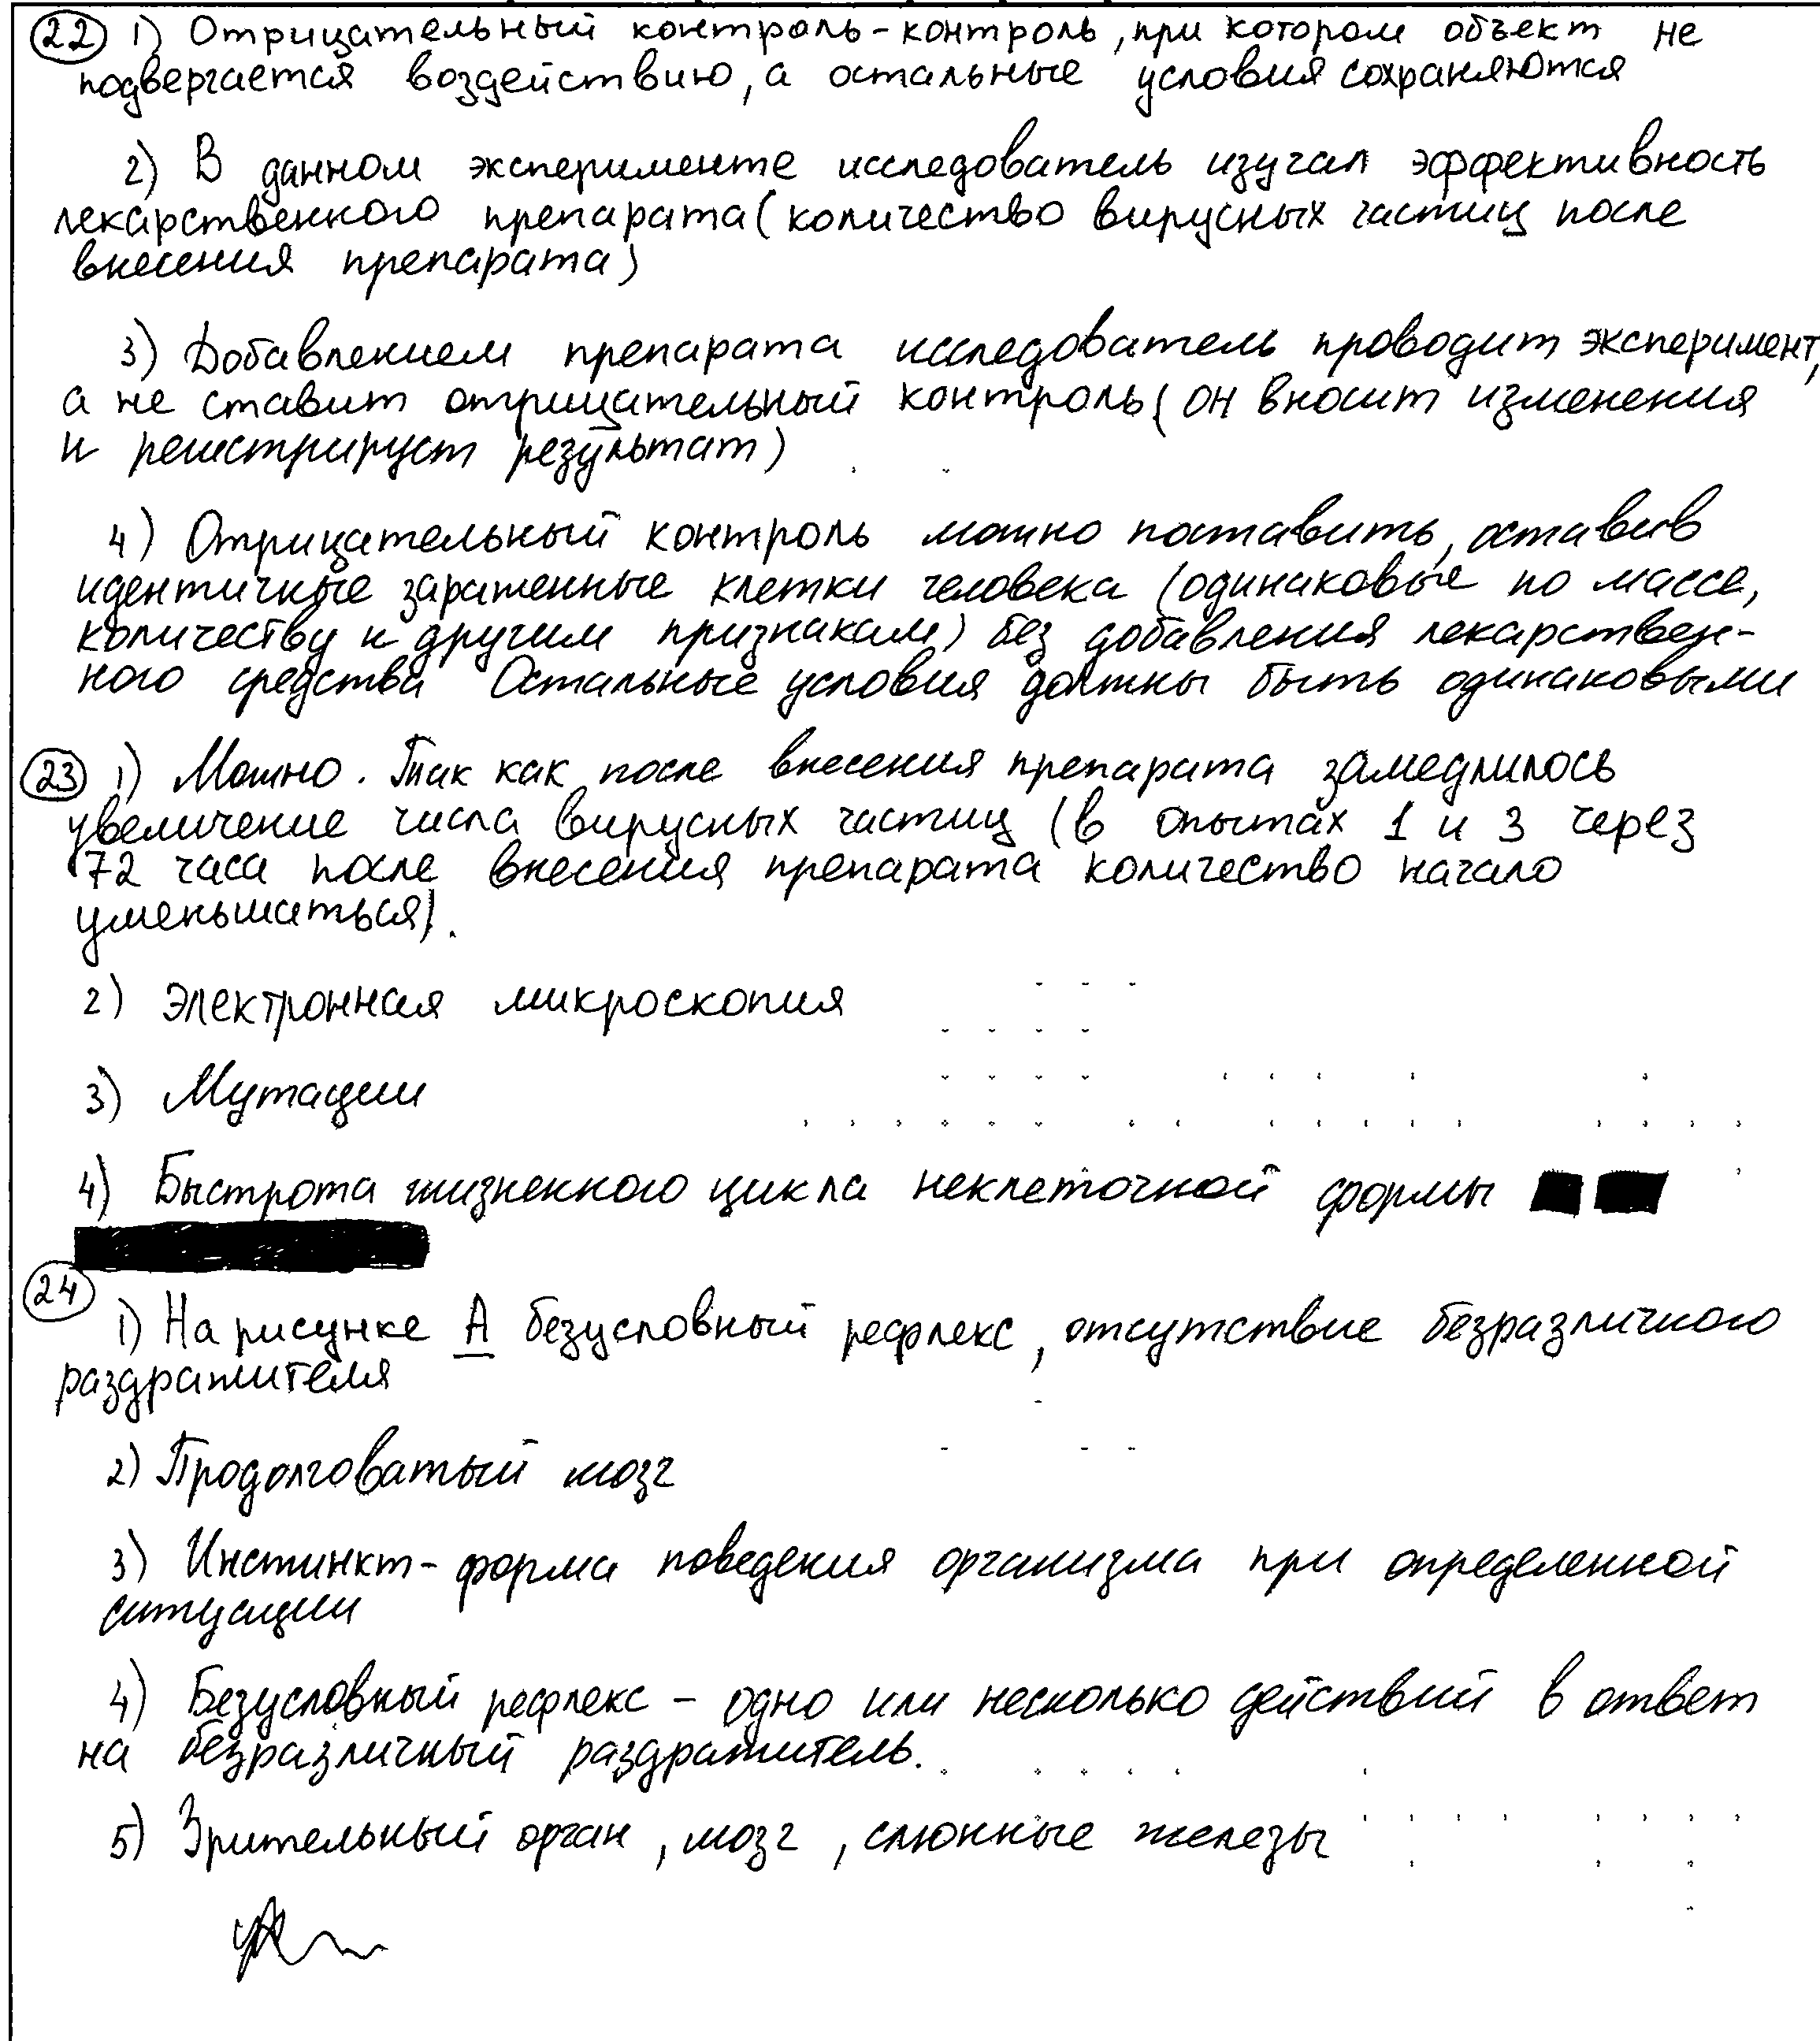 22 1) Отрицательный контроль-контроль, при котором объект не
подвергается воздействию, а остальные условия сохраняются
2) В данном эксперименте исследователь изучал эффективность
лекарственного препарата (количество вирусных частиц после
внесения препарата)
3) Добавлением препарата исследователь проводит эксперимент,
а не ставит отрицательный контроль (он вносит изменения
и регистрирует результат)
4) Отрицательный контроль можно поставить, оставив
идентичные зараженные клетки человека (одинаковые по массе,
количеству и другим признакам) без добавления лекарствен-
ного средства Остальные условия должны быть одинаковыми
23 1) Можно. Так как после внесения препарата замедлилось
увеличение числа вирусных частиц (в опытах 1 и 3 через
72 часа после внесения препарата количество начало
уменьшаться).
2) Электронная микроскопия
3) Мутации
4) Быстрота жизненного цикла неклеточной формы
24
1) На рисунке А безусловный рефлекс, отсутствие безразличного
раздражителя
2) Продолговатый мозг
3) Инстинкт- форма поведения организма при определенной
ситуации
4) Безусловный рефлекс - одно или несколько действий в ответ
на безразличный раздражитель.
5) Зрительный орган, мозг, слюнные железы